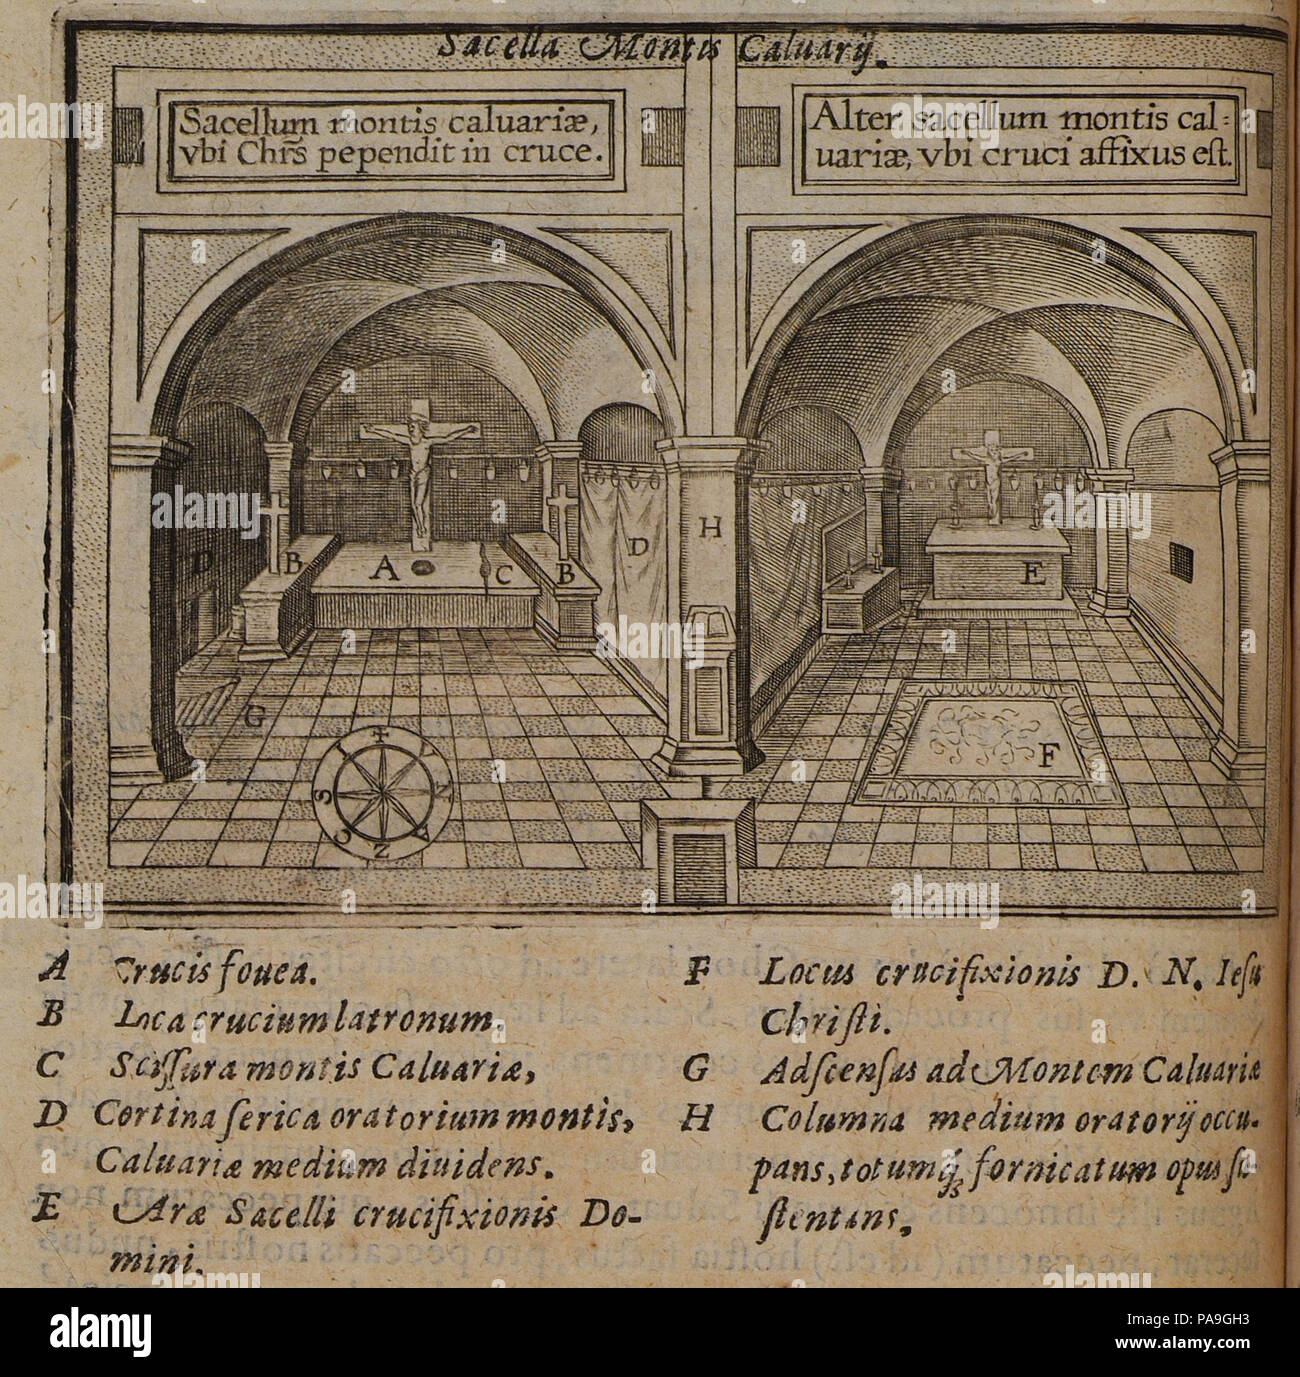 Sacella Montis Caluarij.
Sacellum montis caluariæ,
vbi Chrs̃ pependit in cruce.
Alter sacellum montis cal=
uariæ, vbi cruci affixus est.
D B A C B D H E
G F
A Crucis fouea.
B Loca crucium latronum.
C Scissura montis Caluariæ,
D Cortina serica oratorium montis,
Caluariæ medium diuidens.
E Aræ Sacelli crucifixionis Do-
mini.
F Locus crucifixionis D. N. Iesu
Christi.
G Adscensus ad Montem Caluariæ
H Columna medium oratorij occu-
pans, totumq; fornicatum opus su-
stentans.
alamy
Image ID: PA9GH3
www.alamy.com